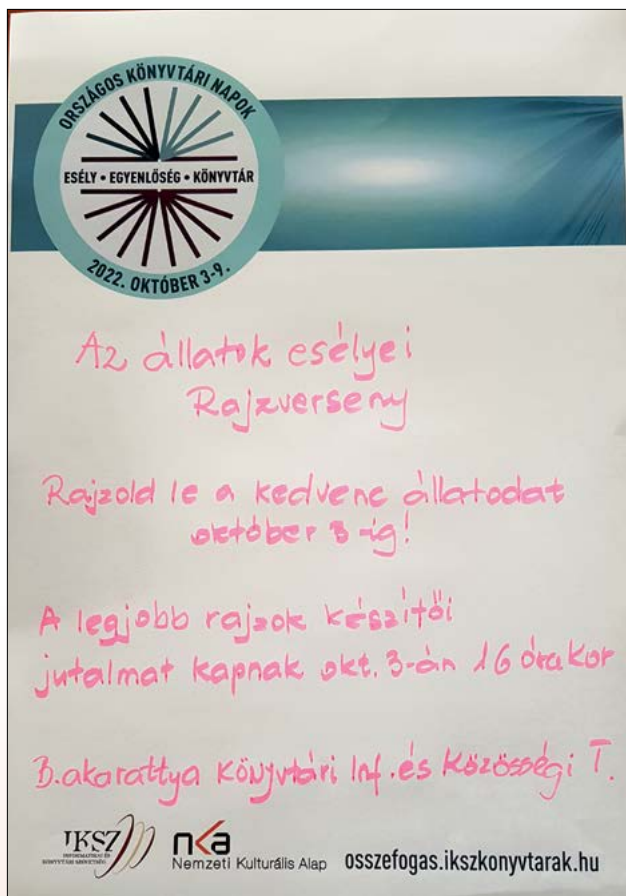 ORSZÁGOS KÖNYVTÁRI NAPOK
ESÉLY • EGYENLŐSÉG • KÖNYVTÁR
2022. OKTÓBER 3-9.
Az állatok esélyei
Rajzverseny
Rajzold le a kedvenc állatodat
október 3-ig!
A legjobb rajzok készítői
jutalmat kapnak okt. 3-án 16 órakor
B.akarattya Könyvtári Inf. és Közösségi T.
IKSZ
INFORMATIKAI ÉS
KÖNYVTÁRI SZÖVETSÉG
nka
Nemzeti Kulturális Alap
osszefogas.ikszkonyvtarak.hu